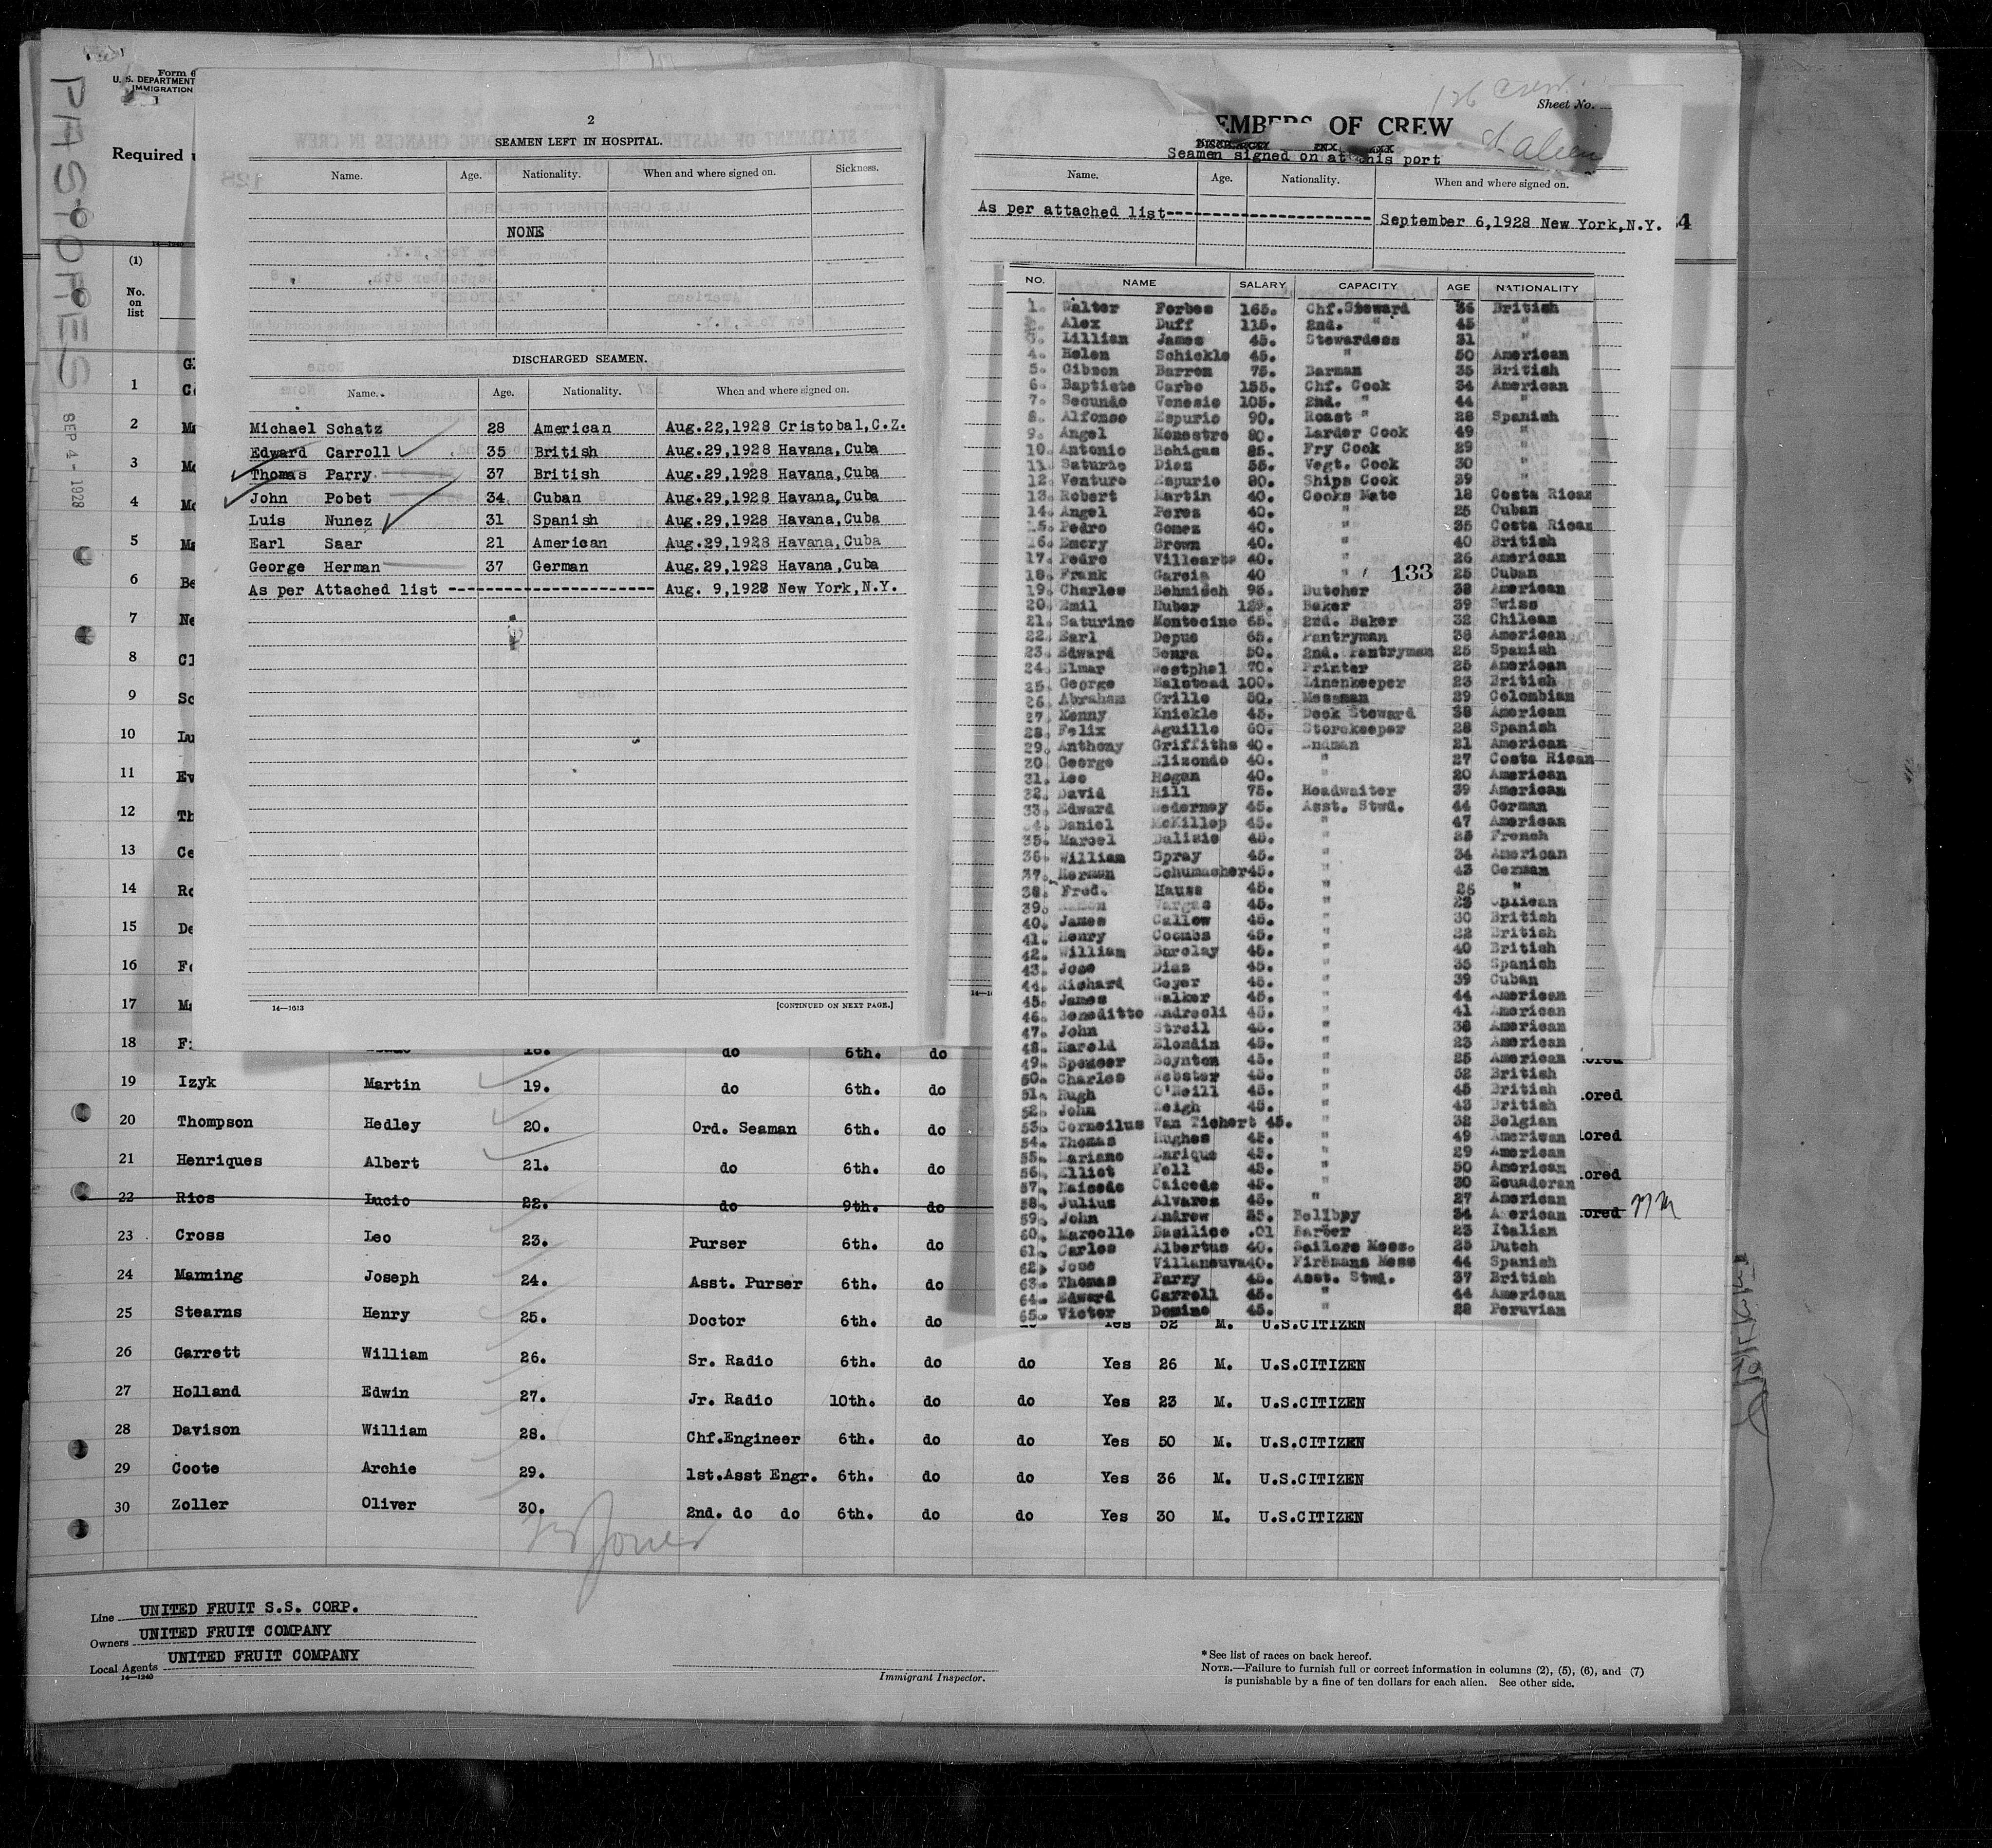 PASTORES
SEP 4 - 1928
Form 6
U. S. DEPARTMENT
IMMIGRATION
Required
(1)
No.
on
list
2
SEAMEN LEFT IN HOSPITAL.
Name. Age. Nationality. When and where signed on. Sickness.
NONE
DISCHARGED SEAMEN.
Name. Age. Nationality. When and where signed on.
Michael Schatz 28 American Aug.22,1928 Cristobal,C.Z.
Edward Carroll 35 British Aug.29,1928 Havana,Cuba
Thomas Parry 37 British Aug.29,1928 Havana,Cuba
John Pobet 34 Cuban Aug.29,1928 Havana,Cuba
Luis Nunez 31 Spanish Aug.29,1928 Havana,Cuba
Earl Saar 21 American Aug.29,1928 Havana,Cuba
George Herman 37 German Aug.29,1928 Havana,Cuba
As per Attached list ---------------------- Aug. 9,1928 New York,N.Y.
14—1613 [CONTINUED ON NEXT PAGE.]
126 crew
Sheet No.
EMBERS OF CREW
Seamen signed on at this port
Name. Age. Nationality. When and where signed on.
As per attached list---------------------- September 6,1928 New York,N.Y.
NO. NAME SALARY CAPACITY AGE NATIONALITY
1. Walter Forbes 165. Chf.Steward 36 British
2. Alex Duff 115. 2nd. " 45 "
3. Lillian James 45. Stewardess 31 "
4. Helen Schickle 45. " 50 American
5. Gibson Barron 75. Barman 35 British
6. Baptiste Carbo 155. Chf. Cook 34 American
7. Secundo Venesio 105. 2nd. " 44 "
8. Alfonso Espurio 90. Roast " 28 Spanish
9. Angel Monestro 80. Larder Cook 49 "
10. Antonio Bohigas 85. Fry Cook 29 "
11. Saturio Diaz 55. Vegt. Cook 30 "
12. Venturo Espurio 80. Ships Cook 39 "
13. Robert Martin 40. Cooks Mate 18 Costa Rican
14. Angel Perez 40. " 25 Cuban
15. Pedro Gomez 40. " 35 Costa Rican
16. Emery Brown 40. " 40 British
17. Pedro 40. " 26 American
18. Frank Garcia 40 " 133 25 Cuban
19. Charles Behmisch 95. Butcher 38 American
20. Emil Huber Baker 39 Swiss
21. Saturino Montecino 65. 2nd. Baker 32 Chilean
22. Earl Depue 65. Pantryman 38 American
23. Edward Senra 50. 2nd. Pantryman 25 Spanish
24. Elmar Westphel 70. Printer 25 American
25. George Halstead 100. Linenkeeper 23 British
26. Abraham Grillo 50. Messman 29 Colombian
27. Kenny Knickle 45. Deck Steward 38 American
28. Felix Aguillo 60. Storekeeper 28 Spanish
29. Anthony Griffiths 40. Endman 21 American
30. George Elizondo 40. " 27 Costa Rican
31. Leo Hogan 40. " 20 American
32. David Hill 75. Headwaiter 39 American
33. Edward 45. Asst. Stwd. 44 German
34. Daniel McKillop 45. " 47 American
35. Marcel Dalizio 45. " 25 French
36. William Spray 45. " 34 American
37. Herman Schumacher 45. " 43 German
38. Fred. Hauss 45. " 26 "
39. Ramon Vargas 45. " 29 Chilean
40. James Callow 45. " 30 British
41. Henry Coombs 45. " 22 British
42. William Barclay 45. " 40 British
43. Jose Diaz 45. " 35 Spanish
44. Richard Goyer 45. " 39 Cuban
45. James Walker 45. " 44 American
46. Beneditto Andreoli 45. " 41 American
47. John Streil 45. " 38 American
48. Harold Blondin 45. " 23 American
49. Spencer Boynton 45. " 25 American
50. Charles Webster 45. " 52 British
51. Hugh O'Neill 45. " 45 British
52. John Neigh 45. " 43 British
53. Corneilus Van Tichert 45. " 32 Belgian
54. Thomas Hughes 45. " 49 American
55. Mariano Enrique 45. " 29 American
56. Elliot Fell 45. " 50 American
57. Caicedo 45. " 30 Ecuadoran
58. Julius Alvarez 45. " 27 American
59. John Andrew 35. Bellboy 34 American
60. Marcello Basilico .01 Barber 23 Italian
61. Carlos Albertus 40. Sailors Mess. 25 Dutch
62. Jose Villanueva 40. Firemans Mess 44 Spanish
63. Thomas Parry 45. Asst. Stwd. 37 British
64. Edward Carroll 45. " 44 American
65. Victor Domino 45. " 28 Peruvian
1
2
3
4
5
6
7
8
9
10
11
12
13
14
15
16
17
18 18. do 6th. do
19 Izyk Martin 19. do 6th. do
20 Thompson Hedley 20. Ord. Seaman 6th. do
21 Henriques Albert 21. do 6th. do
22 Rios Lucio 22. do 9th. do
23 Cross Leo 23. Purser 6th. do
24 Manning Joseph 24. Asst. Purser 6th. do
25 Stearns Henry 25. Doctor 6th. do Yes 52 M. U.S.CITIZEN
26 Garrett William 26. Sr. Radio 6th. do do Yes 26 M. U.S.CITIZEN
27 Holland Edwin 27. Jr. Radio 10th. do do Yes 23 M. U.S.CITIZEN
28 Davison William 28. Chf.Engineer 6th. do do Yes 50 M. U.S.CITIZEN
29 Coote Archie 29. 1st.Asst Engr. 6th. do do Yes 36 M. U.S.CITIZEN
30 Zoller Oliver 30. 2nd. do do 6th. do do Yes 30 M. U.S.CITIZEN
Line UNITED FRUIT S.S. CORP.
Owners UNITED FRUIT COMPANY
Local Agents UNITED FRUIT COMPANY
14—1240
Immigrant Inspector.
* See list of races on back hereof.
NOTE.—Failure to furnish full or correct information in columns (2), (5), (6), and (7)
is punishable by a fine of ten dollars for each alien. See other side.